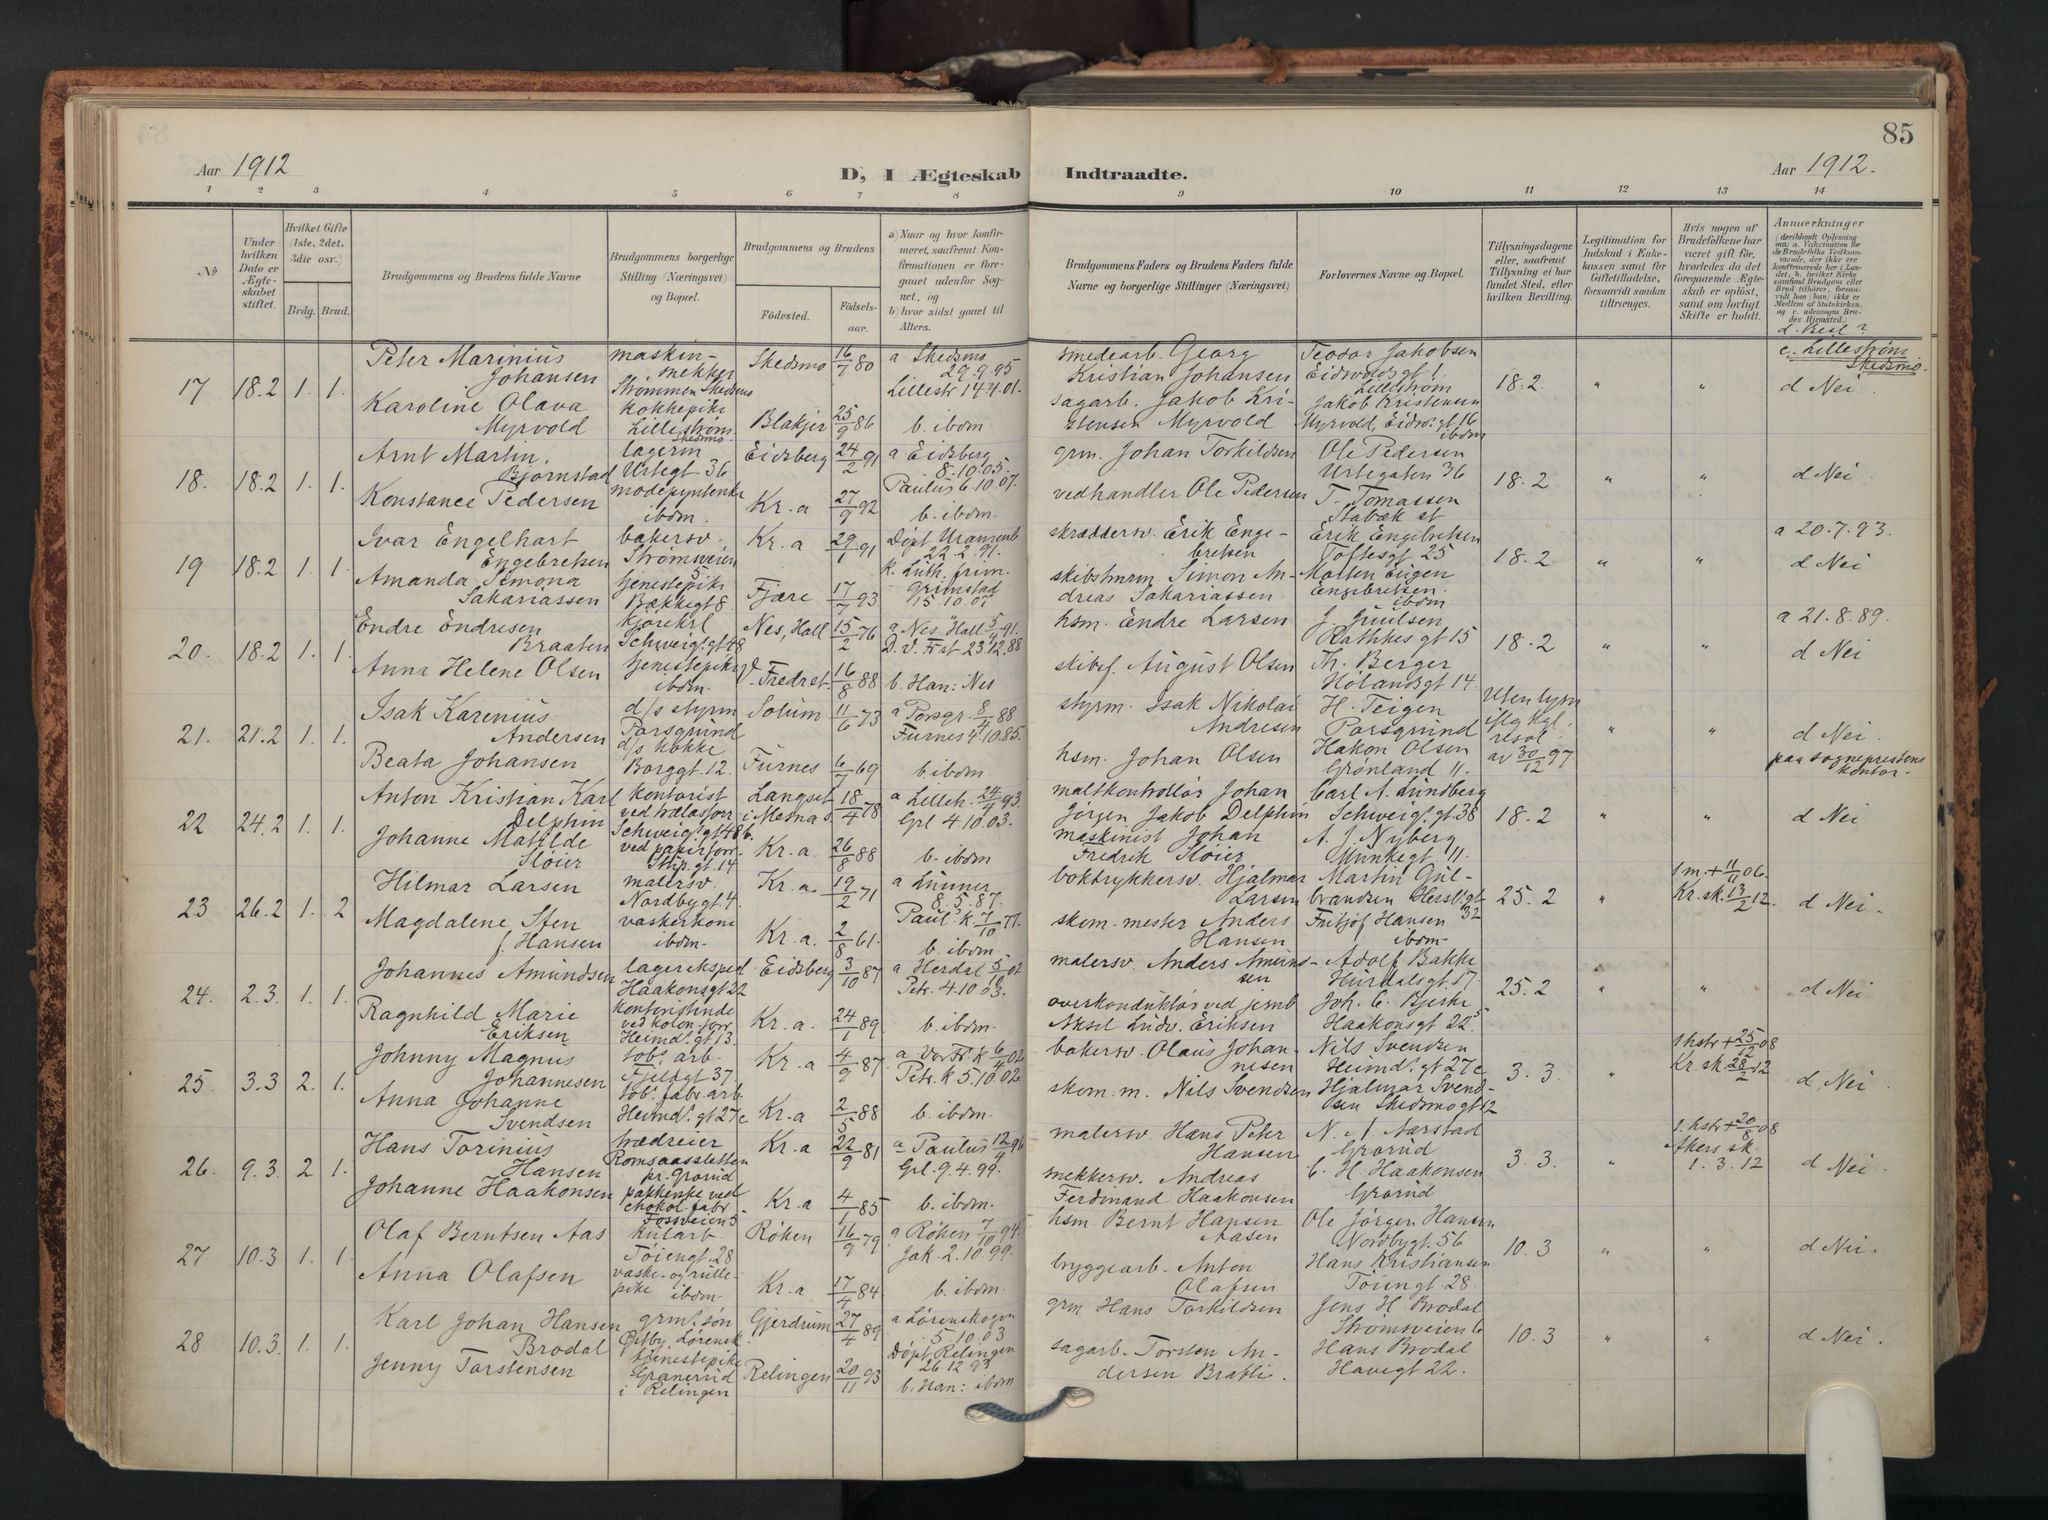 85
Aar 1912
D, I Ægteskab Indtraadte.
Aar 1912.
1 2 3 4 5 6 7 8 9 10 11 12 13 14
No
Under hvilken Dato er Ægteskabet stiftet.
Hvilket Gifte (1ste, 2det, 3die osv.)
Brdg. Brud.
Brudgommens og Brudens fulde Navne
Brudgommens borgerlige Stilling (Næringsvei) og Bopæl.
Brudgommens og Brudens
Födested.
Födselsaar.
a) Naar og hvor konfirmeret, saafremt Konfirmationen er foregaaet udenfor Sognet, og
b) hvor sidst gaaet til Alters.
Brudgommens Faders og Brudens Faders fulde Navne og borgerlige Stillinger (Næringsvei)
Forlovernes Navne og Bopæl.
Tillysningsdagene eller, saafremt Tillysning ei har fundet Sted, efter hvilken Bevilling.
Legitimation for Indskud i Enkekassen samt for Giftetilladelse, forsaavidt saadan tiltrænges.
Hvis nogen af Brudefolkene har været gift før, hvorledes da det foregaaende Ægteskab er oplöst, samt om lovligt Skifte er holdt.
Anmærkninger
(deriblandt Oplysning om: a. Vakcination for de Brudefolks Vedkommende, der ikke ere konfirmerede her i Landet; b. hvilket Kirkesamfund Brudgom eller Brud tilhörer, forsaavidt han (hun) ikke er Medlem af Statskirken, og c. udensogns Brudes Hjemsted.)
d. Besl?
17 18.2 1. 1.
Peter Marinius Johansen
maskinmekker Strømmen Skedsmo
Skedsmo 16/7 80
a Skedsmo 29.9.95
smedearb. Georg Kristian Johansen
Teodor Jakobsen Eidsvoldsgt 1. Lillestrøm
18.2. " " c. Lillestrøm Skedsmo. d Nei
Karoline Olava Myrvold
kokkepike Lillestrøm Skedsmo.
Blakjer 25/9 86
Lillestr 14 4.01.
b. ibdm.
sagarb. Jakob Kristensen Myrvold
Jakob Kristensen Myrvold, Eidsv. gt 16 ibdm
18. 18.2 1. 1.
Arnt Martin Bjørnstad
lagerm Urtegt 36
Eidsberg 24/2 91
a Eidsberg 8.10.05.
grm. Johan Torkildsen
Ole Pedersen Urtegaten 36
18.2 " " d Nei
Konstance Pedersen
modepynterske ibdm.
Kr.a 27/9 92
Paulus 6.10.07.
b. ibdm.
vedhandler Ole Pedersen
T. Tomassen Stabæk st
19 18.2 1. 1.
Ivar Engelhart Engebretsen
bakersv. Strømsveien 5
Kr.a 29/1 91
Døpt Uranienb 22.2.91.
skræddersv. Erik Engebretsen
Erik Engebretsen Toftesgt 25
18.2 " " a 20.7.93. d Nei
Amanda Simona Sakariassen
tjenestepike Bækkegt 8
Fjære 17/7 93
k. Luth. frim. Grimstad 15.10.07
skibstmrm. Simon Andreas Sakariassen
Morten Eugen Engebretsen. ibdm
20. 18.2 1. 1.
Endre Endresen Braaten
kjørekrl Schweig. gt 48
Nes, Hall 15/2 76
a Nes Hall 5/4 91.
hsm. Endre Larsen
J. Juulsen Rathkes gt 15
18.2 " " a 21.8.89. d Nei
Anna Helene Olsen
tjenestepike ibdm.
V. Fredrst. 16/8 88
D. V. Frst 23 12.88
b. Han: Nes
skibsf. August Olsen
Th. Berger Hølandsgt 14.
21. 21.2 1. 1.
Isak Karenius Andersen
d/s styrm Porsgrund
Solum 11/6 73
a Porsgr. 8/4 88
styrm. Isak Nikolai Andresen
H. Teigen Porsgrund
Uten lysn iflg kgl. resol. av 30/12 97
" " d Nei. paa sogneprestens kontor.
Beata Johansen
d/s kokke Borggt. 12.
Furnes 6/7 69
Furnes 4.10.85.
b. ibdm
hsm. Johan Olsen
Hakon Olsen Grønland 11.
22 24.2 1. 1.
Anton Kristian Karl Delphin
kontorist ved trælastforr Schweig. gt 48b
Langset i Mesna s. 18/4 78
a Lilleh. 24/9 93.
maltkontrollør Johan Jørgen Jakob Delphin
Carl A. Lundberg Schweig. gt 38
18.2 " " d Nei
Johanne Matilde Sløier
ved papirforr. Stup. gt. 14
Kr.a 26/8 88
Grl 4 10.03.
b. ibdm
maskinist Johan Fredrik Sløier
A. J. Nyberg Munkegt 11.
23 26.2 1. 2
Hilmar Larsen
malersv. Nordbygt. 4
Kr.a. 19/2 71
a Lunner 8.5.87.
boktrykkersv. Hjalmar Larsen
Martin Gulbrandsen Hersl. gt 32
25.2 " 1 m. + 11/11 06. Kr. sk. 13/2 12. d Nei.
Magdalene Sten f. Hansen
vaskerkone ibdm.
Kr.a. 2/8 61.
Paul. k 7/10 77.
b. ibdm.
skom. mester Anders Hansen
Fritjof Hansen ibdm.
24. 2.3. 1. 1.
Johannes Amundsen
lagereksped Haakonsgt 22
Eidsberg 3/10 87
a Herdal 5/10 02
malersv. Anders Amundsen
Adolf Bakke Hurdalsgt. 17.
25.2 " " d Nei
Ragnhild Marie Eriksen
kontoristinde ved kolon.forr Heimd. gt 13.
Kr.a. 24/1 89.
Petr. 4.10 03.
b. ibdm.
overkonduktør ved jernb Aksel Ludv. Eriksen
Joh. C. Bjerke Haakonsgt 22.
25. 3.3 2. 1.
Johnny Magnus Johannesen
tob. arb. Fjeldgt 37
Kr.a 4/9 87.
a Vor Fr. k 6/4 02
bakersv. Olaus Johannesen
Nils Svendsen Heimd. gt 27c
3.3. " 1 hstr + 25/12 08 Kr. sk. 28/2 12 d Nei
Anna Johanne Svendsen
tob. fabr. arb Heimd. gt 27c
Kr.a 2/5 88
Petr. k 5.10 02.
b. ibdm.
skom. m. Nils Svendsen
Hjalmar Svendsen Skedsmogt 12
26. 9.3. 2 1.
Hans Torinius Hansen
trædreier Romsaassletten pr. Grorud
Kr.a 22/9 81
a Paulus 12/4 96
malersv. Hans Peter Hansen
N. A. Aarstad Grorud
3.3. " 1. hstr + 20/8 08 Akers sk. 1.3.12 d Nei
Johanne Haakonsen
pakkerske ved chokol. fabr Fossveien 5
Kr.a 4/1 85
Grl. 9.4.99.
b. ibdm.
mekkersv. Andreas Ferdinand Haakonsen
C. H. Haakonsen Grorud
27 10.3 1. 1.
Olaf Berntsen Aas
kularb Tøiengt. 28
Røken 16/9 79.
a Røken 7/10 94.
hsm. Bernt Hansen Aasen
Ole Jørgen Hansen Nordbygt. 56
10.3 " " d Nei.
Anna Olafsen
vaske- og rullepike ibdm.
Kr.a 17/4 84
Jak. 2.10 99.
b. ibdm.
bryggearb. Anton Olafsen
Hans Kristiansen Tøiengt. 28.
28 10.3. 1. 1.
Karl Johan Hansen Brodal
grm. søn Østby, Lørensk.
Gjerdrum 27/4 89
a Lørenskogen 5.10 03
grm Hans Torkildsen
Jens H. Brodal Strømsveien 6
10.3 " " d Nei.
Jenny Torstensen
tjenestepike Granerud i Relingen
Relingen 20/11 93
Døpt Relingen 26 12 93
b. Han: ibdm
sagarb. Torsten Andersen Bratli.
Hans Brodal Havegt 22.